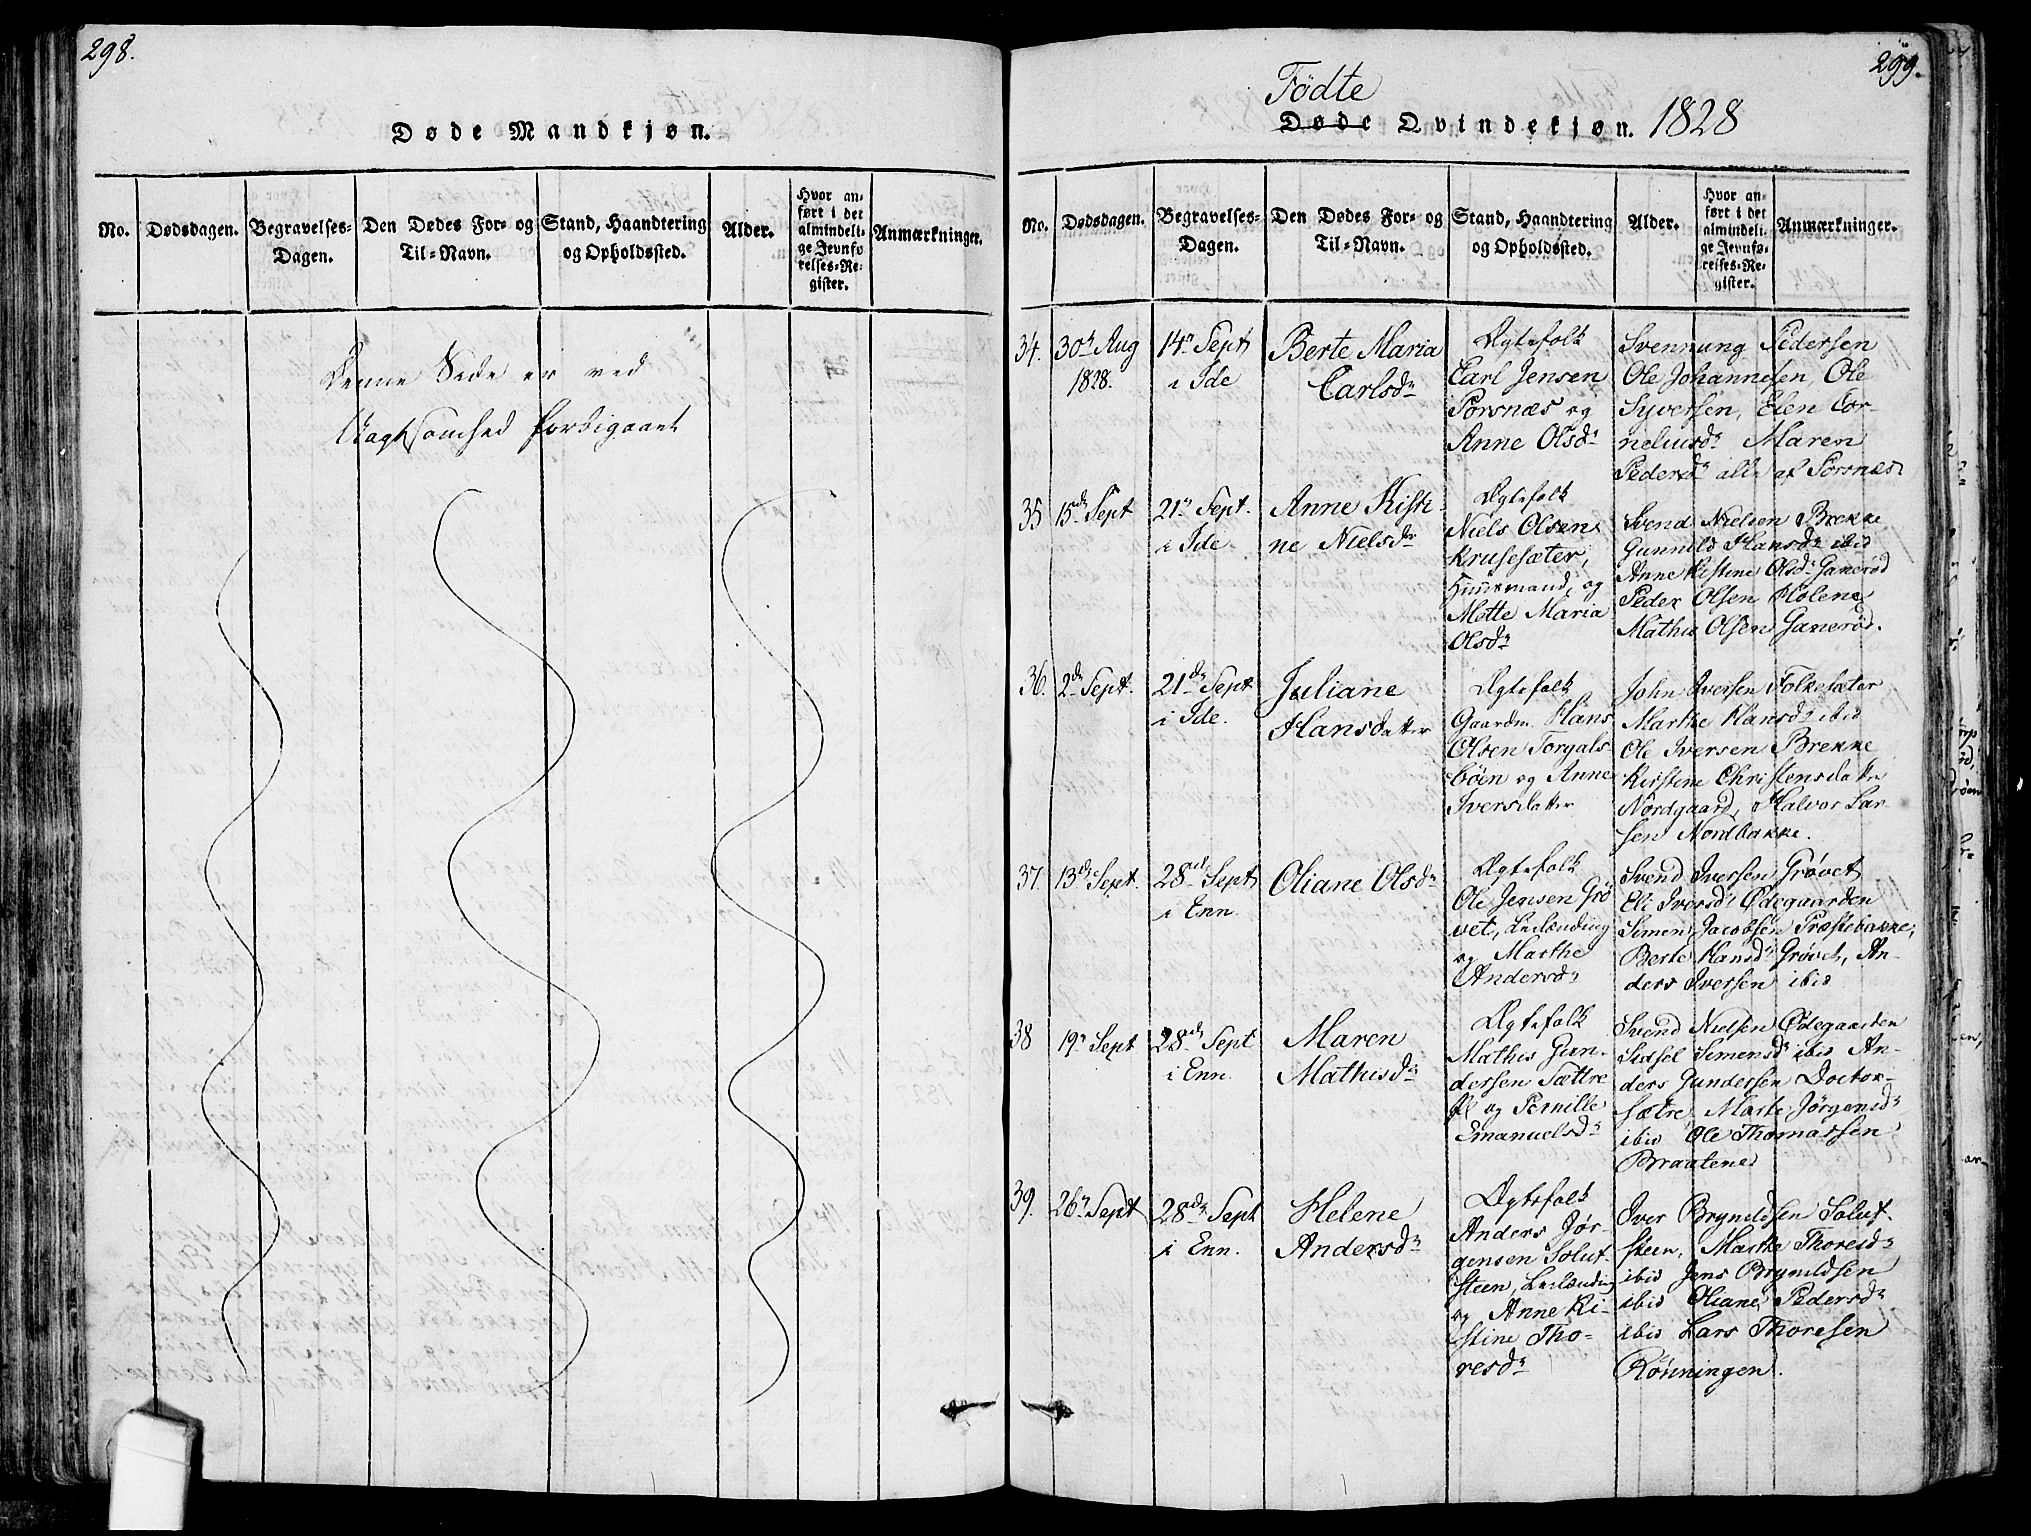 298.
Døde Mandkjøn.
No.
Dødsdagen.
Begravelses-
Dagen.
Den Dødes For- og
Til-Navn.
Stand, Haandtering
og Opholdssted.
Alder.
Hvor an-
ført i det
almindeli-
ge Jevnfø-
relses-Re-
gister.
Anmærkninger.
Denne Side er ved
Uagtsomhed forbigaaet
299.
Födte
Døde Qvindekjøn. 1828
No.
Dødsdagen.
Begravelses-
Dagen.
Den Dødes For- og
Til-Navn.
Stand, Haandtering
og Opholdssted.
Alder.
Hvor an-
ført i det
almindeli-
ge Jevnfø-
relses-Re-
gister.
Anmærkninger.
34.
30te Aug
1828.
14n Sept
i Ide
Berte Maria
Carlsdr
Ægtefolk
Carl Jensen
Porsnæs og
Anne Olsdr
Svennung Pedersen
Ole Johannesen, Ole
Syversen, Elen Cor-
neliusdr Maren
Pedersdr alle af Porsnæs
35
15de Sept
21n Sept.
i Ide
Anne Kisti-
ne Nielsdr
Ægtefolk
Niels Olsen
Krusesæter,
Huusmand, og
Mette Maria
Olsdr
Svend Nielsen Brekke
Gunnild Hansdr ibid
Anne Kistine Olsdr Ganerød
Peder Olsen Holene
Mathis Olsen Ganerød.
36.
2den Sept.
21de Sept
i Ide.
Juliane
Hansdatter
Ægtefolk
Gaardm. Hans
Olsen Torgals-
böen og Anne
Iversdatter
John Iversen Folkesæter
Marthe Hansdr ibid
Ole Iversen Brekke
Kirstine Christensdatter
Nordgaard, Halvor Lar
sen Nordbakke.
37.
13de Sept.
28de Sept
i Enn.
Oliane Olsdr
Ægtefolk
Ole Jensen Grö
vet, Leilænding
og Marthe
Andersdr
Svend Iversen Grøvet
Eli Iversdr Ødegaarden
Simen Jacobsen Præstebakke,
Berte Hansdr Grøvet, An-
ders Iversen ibid
38
19n Sept
28de Sept
i Enn.
Maren
Mathisdr
Ægtefolk
Mathis Gun-
dersen Sættre
og Pernille
Emanuelsdr
Svend Nielsen Ødegaarden
Sidsel Simensdr ibid An-
ders Gundersen Doctor-
sætre, Marte Jörgensdr
ibid Ole Thomassen
Braatene
39.
26n Sept
28de Sept
i Enn.
Helene
Andersdr
Ægtefolk
Anders Jör-
gensen Solut-
steen, Leilænding
og Anne Ki-
stine Tho-
resdr
Iver Bryndlsen Solut-
steen, Marthe Thoresdr
ibid Jens Bryndlsen
ibid Oliane Pedersdr
ibid Lars Thoresen
Rönningen.